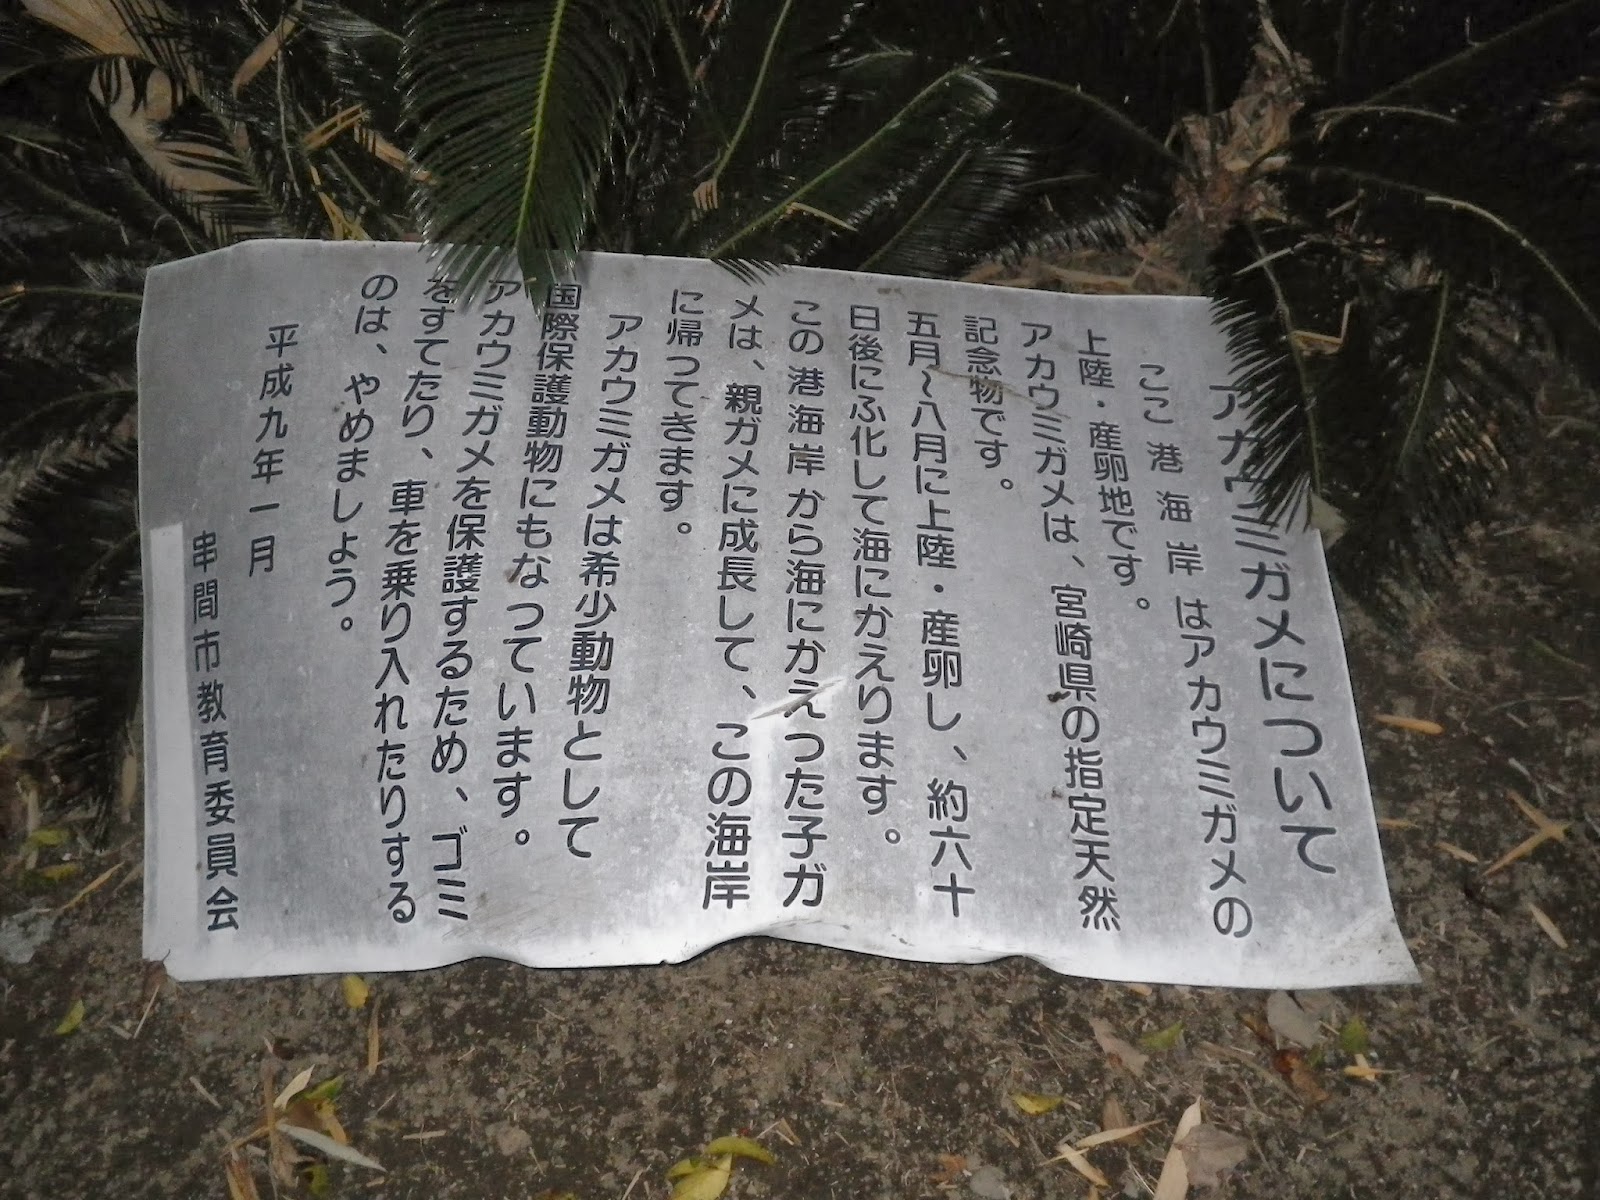 アカウミガメについて
ここ港海岸はアカウミガメの
上陸・産卵地です。
アカウミガメは、宮崎県の指定天然
記念物です。
五月~八月に上陸・産卵し、約六十
日後にふ化して海にかえります。
この港海岸から海にかえった子ガ
メは、親ガメに成長して、この海岸
に帰ってきます。
アカウミガメは希少動物として
国際保護動物にもなっています。
アカウミガメを保護するため、ゴミ
をすてたり、車を乗り入れたりする
のは、やめましよう。
平成九年一月
串間市教育委員会